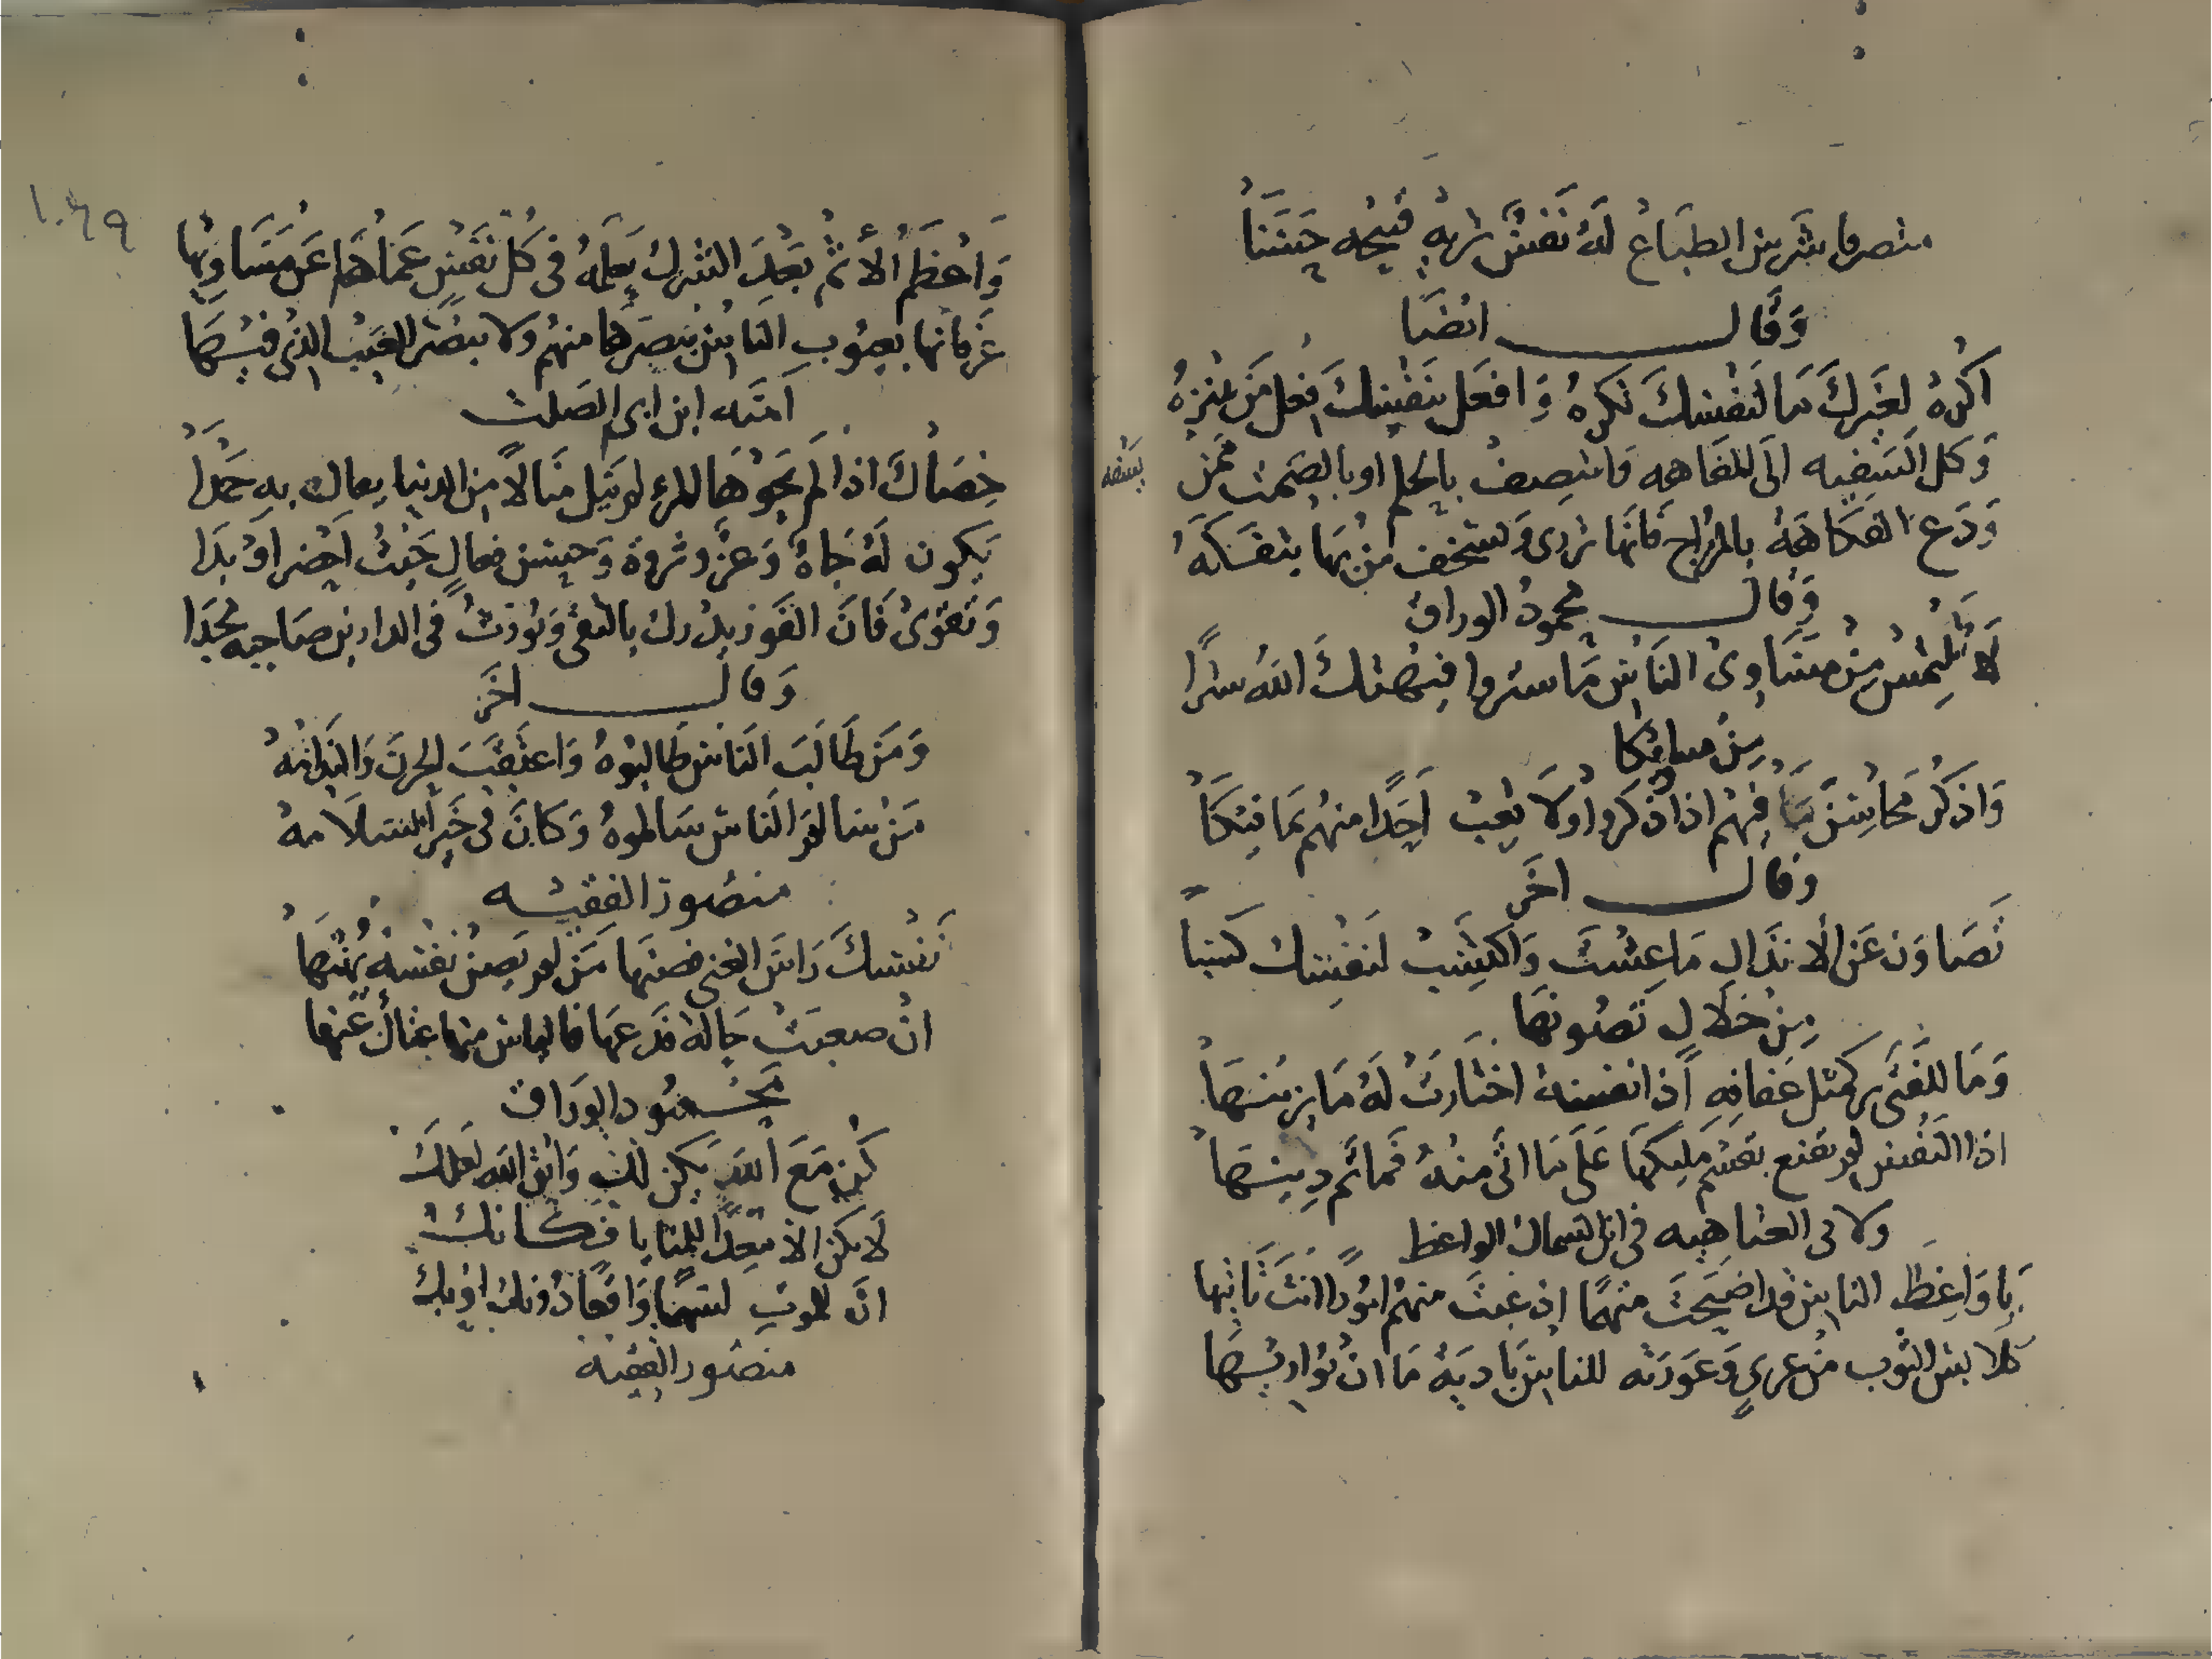 متصرفا بشرين الطباع له نفس شرهه قبيحه حسنا
وقال ايضا
اكره لغيرك ما لنفسك تكره وافعل بنفسك فعل من يتنزه
وكل السفيه الى السفاهه وانتصف بالحلم او بالصمت ممن يسفه
ودع الفكاهة بالمزاح فانها تردى وتسخف من بها يتفكه
وقال محمود الوراق
لا تلتمس من مساوئ الناس ما ستروا فيهتك الله سترا
من مساويكا
واذكر محاسن ما فيهم اذا ذكروا ولا تعب احدا منهم بما فيكا
وقال اخر
تصاون عن الانذال ما عشت واكتسب لنفسك كسبا
من خلال تصونها
وما للفتى بر كمثل عفافه اذا نفسه اختارت له ما يزينها
اذا النفس لم تقنع بقسم مليكها على ما اتى منه فما ثم دينها
ولابى العتاهيه فى ابن السماك الواعظ
يا واعظ الناس قد اصبحت متهما اذ عبت منهم امورا انت تاتيها
كلابس الثوب من عرى وعورته للناس باديه ما ان يواريها
واعظم الاثم بعد الشرك يعلمه فى كل نفس عماها عن مساويها
عرفانها بعيوب الناس تبصرها منهم ولا تبصر العيب الذى فيها
امية ابن ابى الصلت
خصال اذا لم يحوها المرء لم ينل منالا من الدنيا ينال به حمدا
يكون له جاه وعز وثروة وحسن فعال حيث احضر او بدا
وتقوى فان الفوز يدرك بالتقى وتورث فى الدارين صاحبه مجدا
وقال اخر
ومن طالب الناس طالبوه واعتقب الحزن والندامه
من سالم الناس سالموه وكان فى خير السلامه
منصور الفقيه
نفسك راس الغنى فصنها من لم يصن نفسه يهنها
ان صعبت حاله فدعها فالياس منها عنها
محمود الوراق
كن مع الله يكن لك واتق الله لعلك
لا تكن الا معدا للمنايا فكانك
ان للموت لسهما واقعا دونك او بك
منصور الفقيه